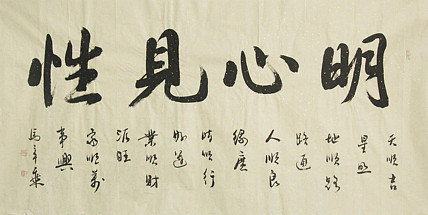 明心見性
天順吉
星照
地順路
路通
人順良
緣廣
時順行
好運
業順財
源旺
家順萬
事興